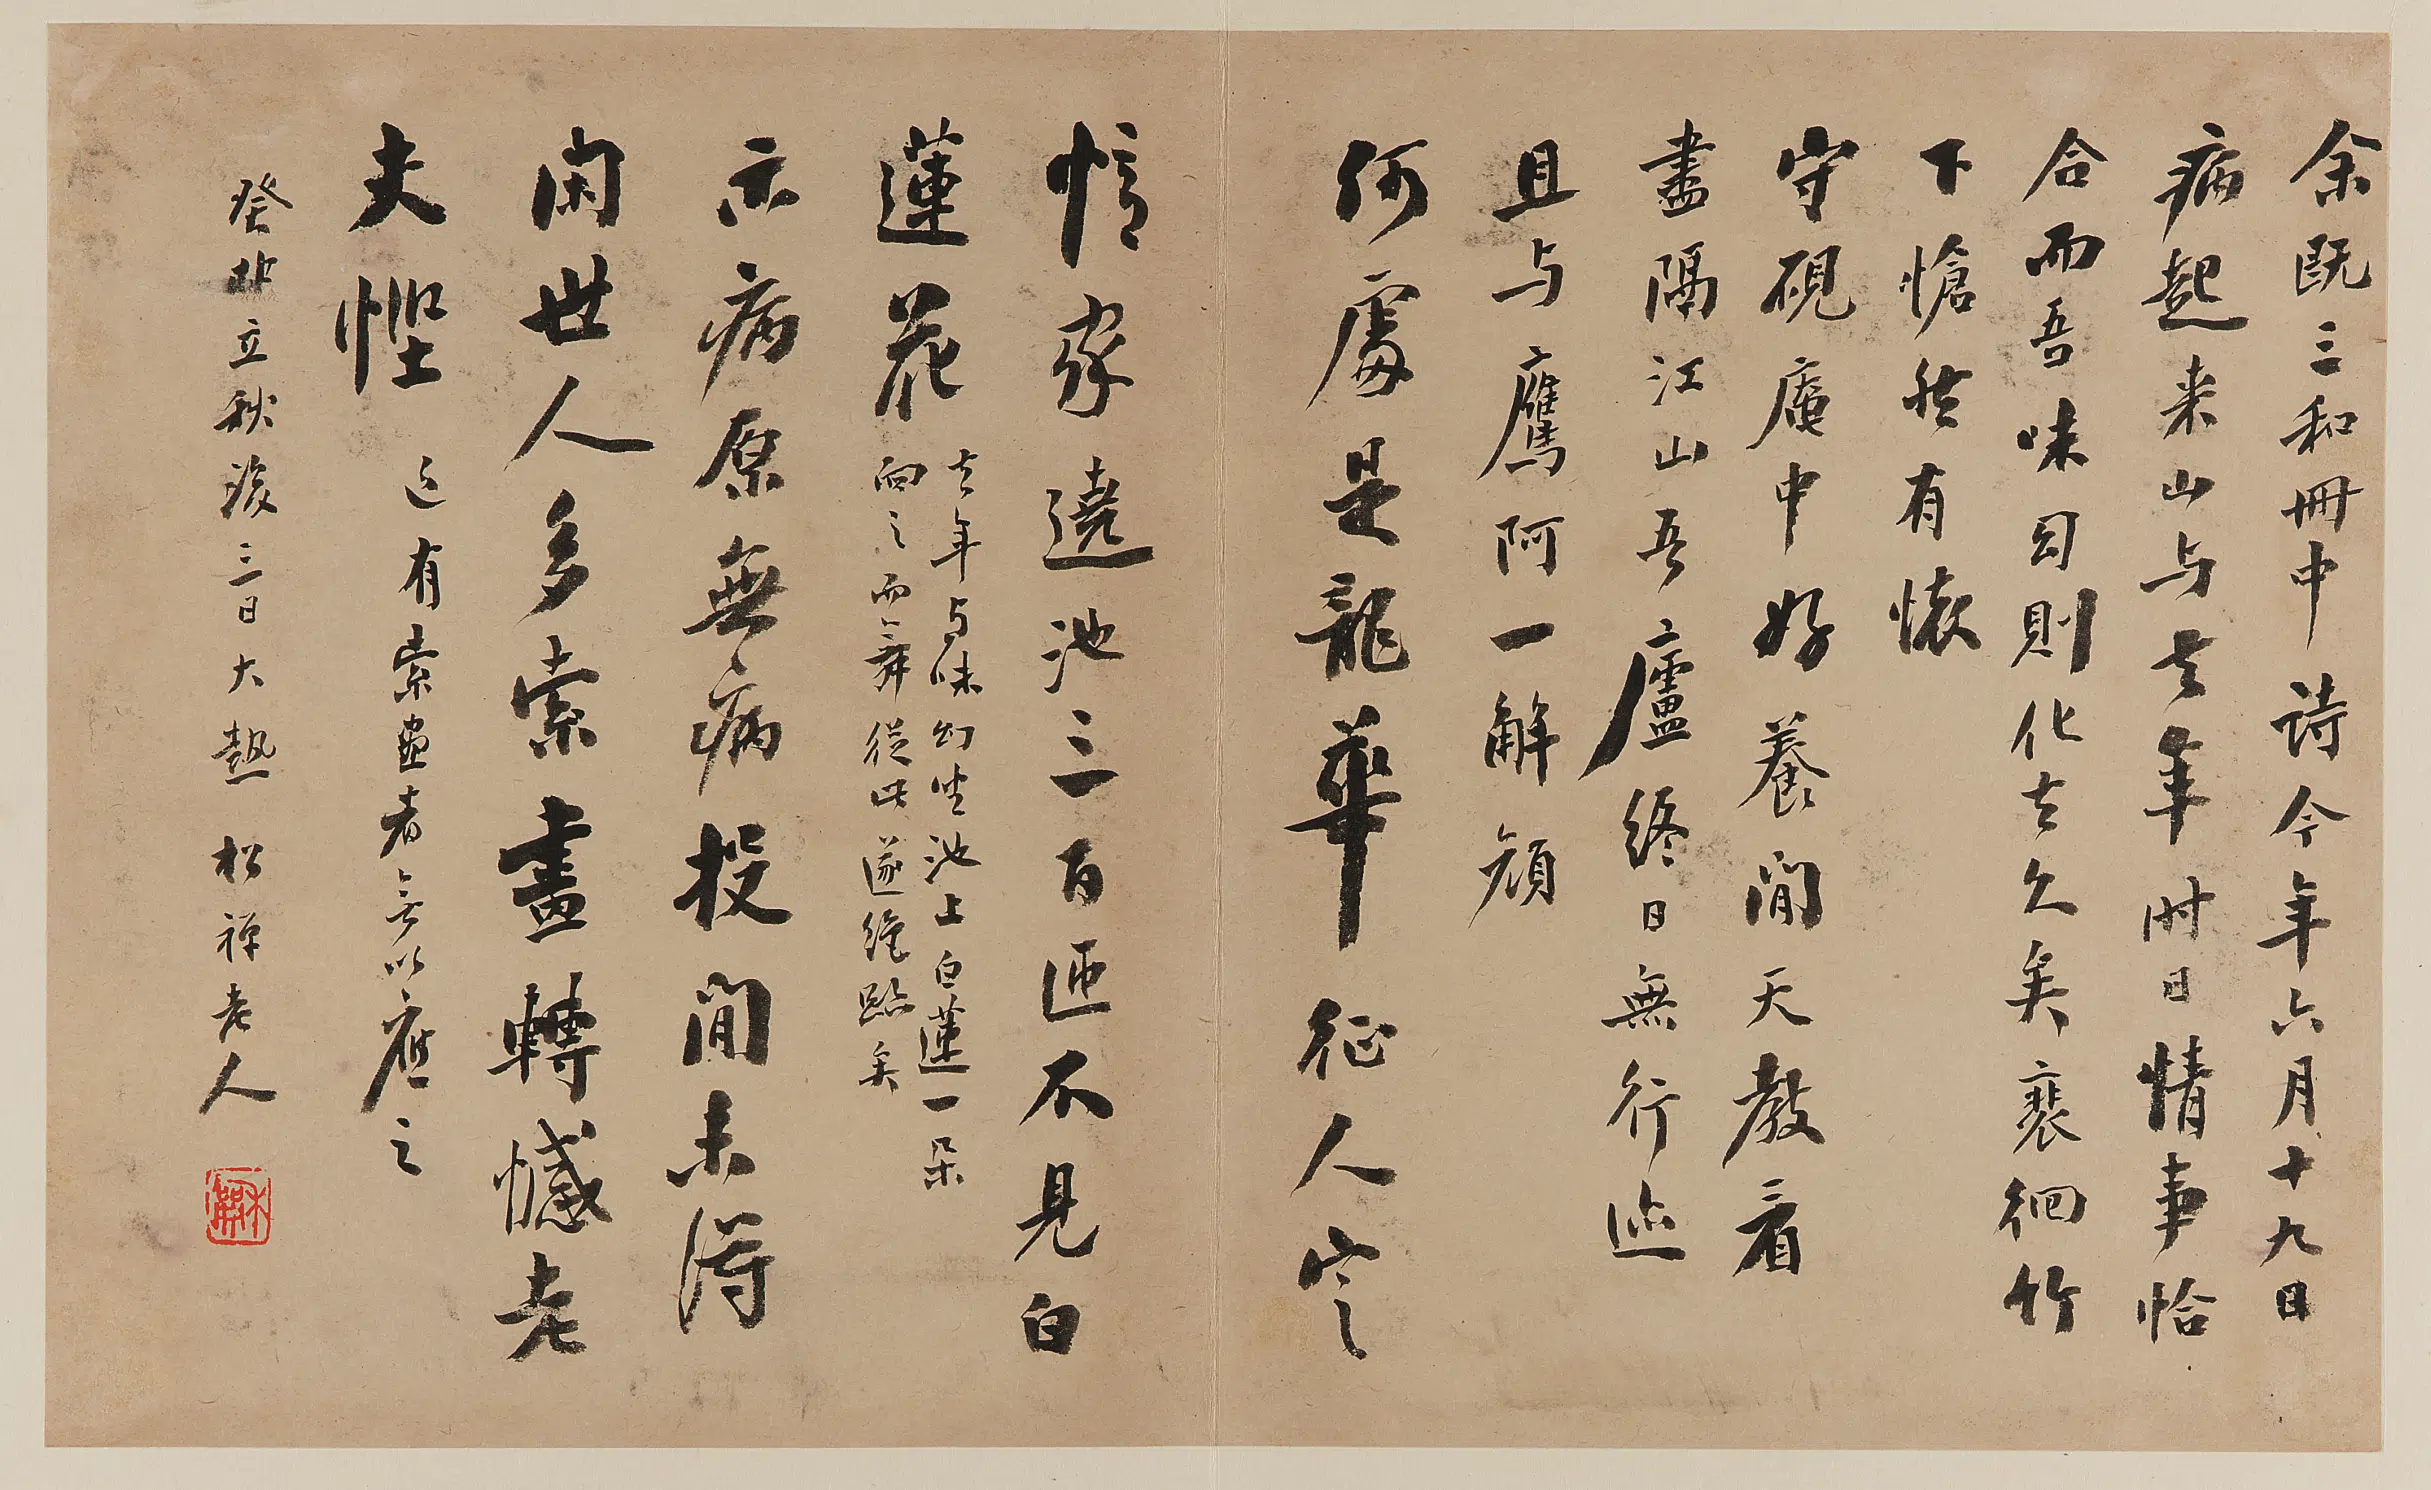 余既三和冊中詩今年六月十九日
病起来山与去年时日情事恰
合而吾味幻則化去久矣裵徊竹
下愴然有懷
守硯庵中好養閒天教看
盡隔江山吾廬終日無行迹
且与鷹阿一解顔
何處是龍華征人定
憶家遶池三百匝不見白
蓮花
去年与味幻坐池上白蓮一朵
向之而舞從此遂絶跡矣
示病原無病投閒未得
閑世人多索畫轉憾老
夫慳
近有索畫者無以應之
癸卯立秋後三日大熱 松禅老人